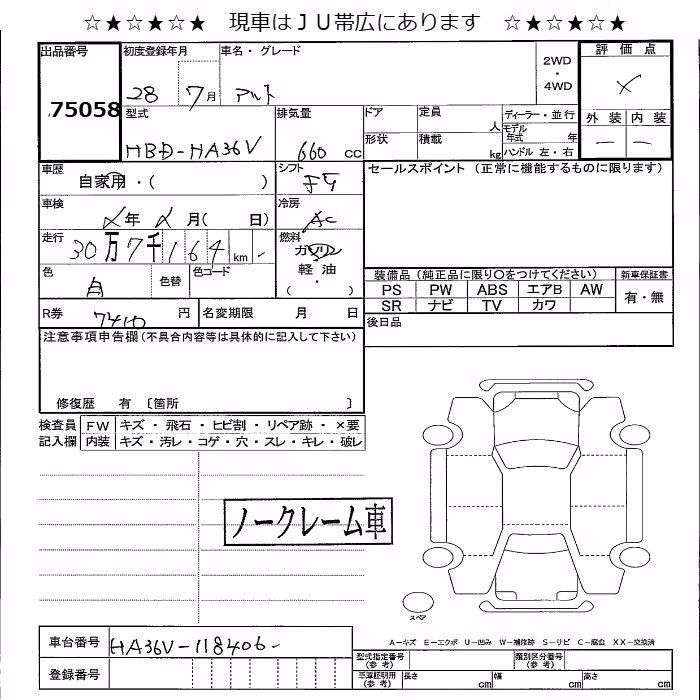 ☆★☆★☆★ 現車はＪＵ帯広にあります ☆★☆★☆★
出品番号 初度登録年月 車名・グレード 2WD・4WD 評価点
75058 28 7月 アルト
型式 排気量 ドア 定員 人 ディーラー・並行 外装 内装
HBD-HA36V 660 cc 形状 積載 kg モデル年式 年 ハンドル 左・右 — —
車歴 シフト セールスポイント (正常に機能するものに限ります)
自家用・( )
車検 冷房
年 月( 日) AC
走行 燃料
30万7千164 km ガソリン
色 色替 色コード 軽油・( )
白
装備品 (純正品に限り〇をつけてください) 新車保証書
PS PW ABS エアB AW 有・無
SR ナビ TV カワ
R券 7410 円 名変期限 月 日 後日品
注意事項申告欄(不具合内容等は具体的に記入して下さい)
修復歴 有 〔箇所 〕
検査員 FW キズ・飛石・ヒビ割・リペア跡・×要
記入欄 内装 キズ・汚レ・コゲ・穴・スレ・キレ・破レ
ノークレーム車
スペア
A－キズ E－エクボ U－凹み W－補修跡 S－サビ C－腐食 XX－交換済
車台番号 HA36V-118406-
登録番号
型式指定番号(参考) 類別区分番号(参考)
車庫証明用(参考) 長さ cm 幅 cm 高さ cm